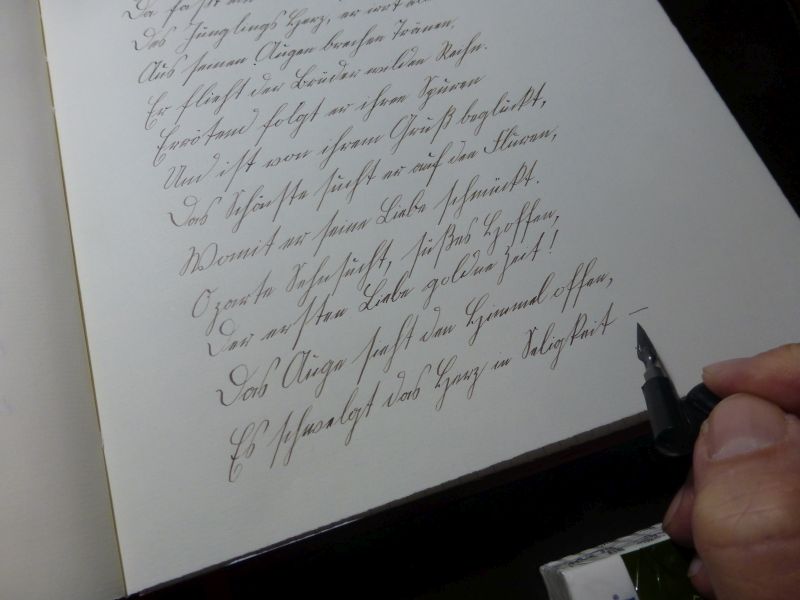 Da faßt ein
Des Jünglings Herz, er irrt
Aus seinen Augen brechen Tränen,
Er flieht der Brüder wilden Reihn.
Errötend folgt er ihren Spuren
Und ist von ihrem Gruß beglückt,
Das Schönste sucht er auf den Fluren,
Womit er seine Liebe schmückt.
O zarte Sehnsucht, süßes Hoffen,
Der ersten Liebe goldne Zeit!
Das Auge sieht den Himmel offen,
Es schwelgt das Herz in Seligkeit –